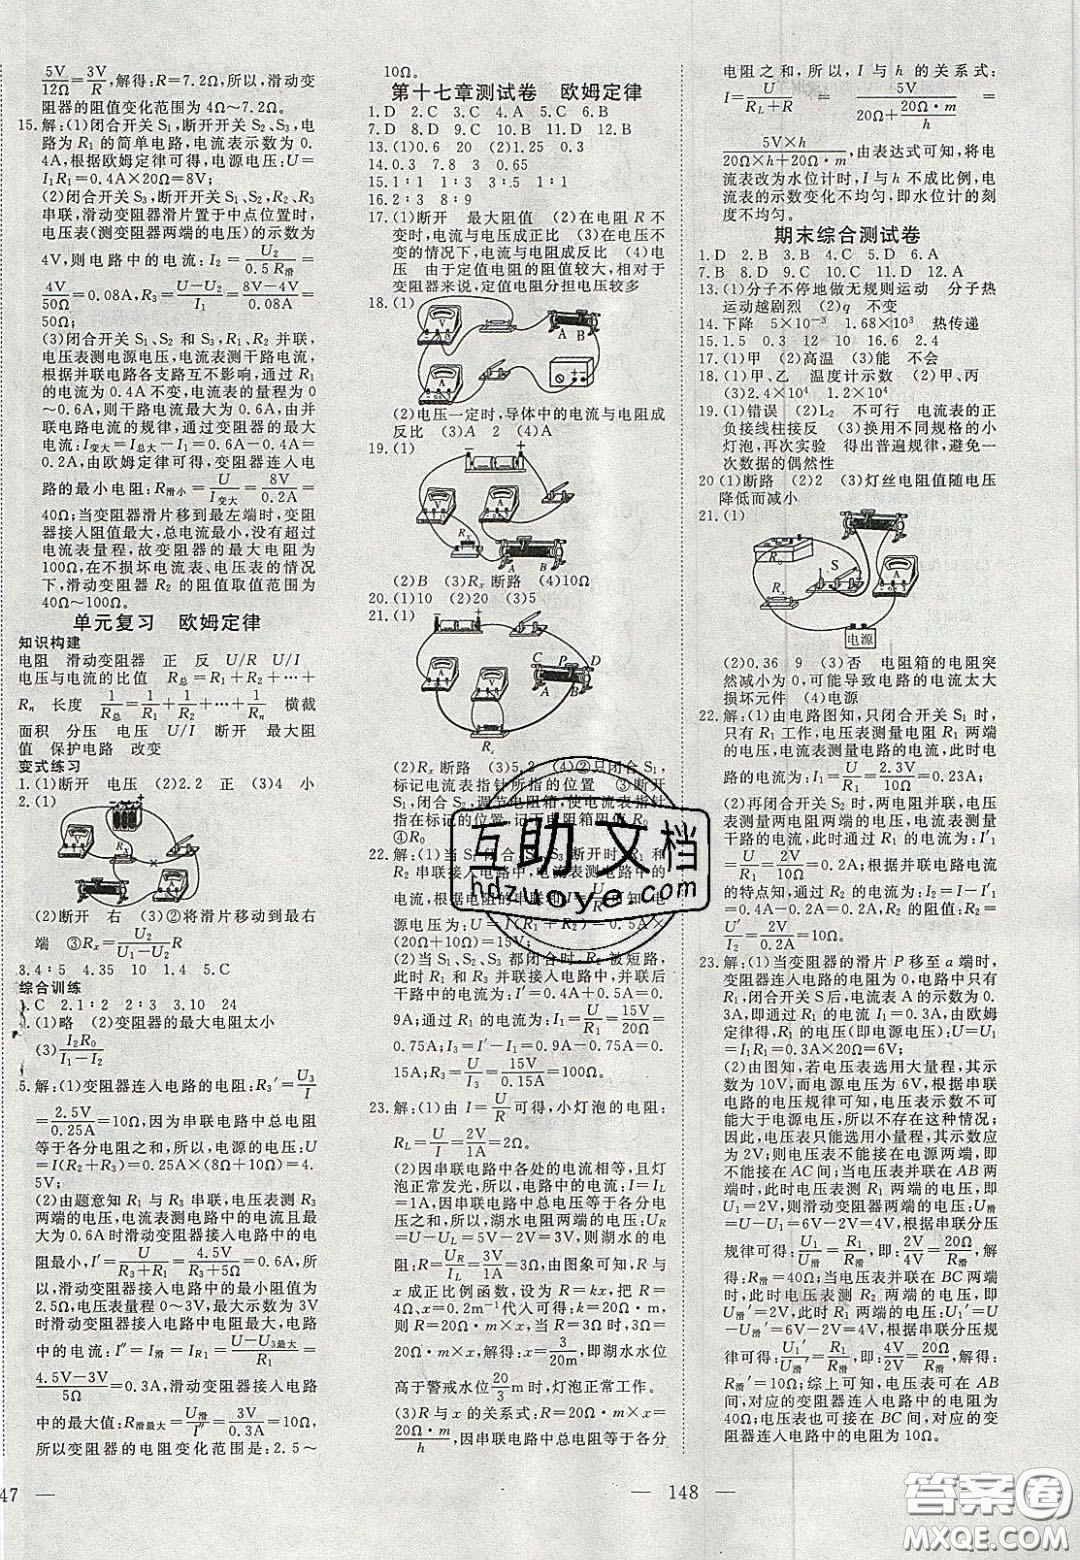 5V/12Ω=3V/R,解得:R=7.2Ω,所以,滑动变
阻器的阻值变化范围为4Ω～7.2Ω。
15.解:(1)闭合开关S₁,断开开关S₂、S₃,电
路为R₁的简单电路,电流表示数为0.
4A,根据欧姆定律可得,电源电压:U=
I₁R₁=0.4A×20Ω=8V;
(2)闭合开关S₃,断开开关S₁、S₂,R₂、R₃
串联,滑动变阻器滑片置于中点位置时,
电压表(测变阻器两端的电压)的示数为
4V,则电路中的电流:I₂=U₂/0.5R滑=
4V/50Ω=0.08A,R₃=U-U₂/I₁=8V-4V/0.08A=
50Ω;
(3)闭合开关S₁、S₂和S₃,R₁、R₂并联,
电压表测电源电压,电流表测干路电流,
根据并联电路各支路互不影响,通过R₁
的电流为0.4A不变,电流表的量程为0
～0.6A,则干路电流最大为0.6A,由并
联电路电流的规律,通过变阻器的最大
电流:I变大=I总大-I₁=0.6A-0.4A=
0.2A,由欧姆定律可得,变阻器连入电路
的最小电阻:R滑小=U/I变大=8V/0.2A=
40Ω;当变阻器滑片移到最左端时,变阻
器接入阻值最大,总电流最小,没有超过
电流表量程,故变阻器的最大电阻为
100Ω,在不损坏电流表、电压表的情况
下,滑动变阻器R₂的阻值取值范围为
40Ω～100Ω。
单元复习 欧姆定律
知识构建
电阻 滑动变阻器 正 反 U/R U/I
电压与电流的比值 R总=R₁+R₂+…+
Rn 长度 1/R总=1/R₁+1/R₂+…+1/Rn 横截
面积 分压 电压 U/I 断开 最大阻
值 保护电路 改变
变式练习
1.(1)断开 电压 (2)2.2 正 (3)4 小
2.(1)
(2)断开 右 (3)②将滑片移动到最右
端 ③Rx=U₂/U₁-U₂R
3.4∶5 4.35 10 1.4 5.C
综合训练
1.C 2.1∶2 2∶3 3.10 24
(1)略 (2)变阻器的最大电阻太小
(3)I₂R₀/I₁-I₂
5.解:(1)变阻器连入电路的电阻:R₃′=U₃/I
=2.5V/0.25A=10Ω,因为串联电路中总电阻
等于各分电阻之和,所以,电源的电压:U=
I(R₂+R₃)=0.25A×(8Ω+10Ω)=4.
5V;
(2)由题意知R₁与R₃串联,电压表测R₃
两端的电压,电流表测电路中的电流且最
大为0.6A时滑动变阻器接入电路中的电
阻最小,I′=U/R₃+R₁=4.5V/R₃+5Ω=0.6A,所
以,滑动变阻器接入电路中的最小阻值为
2.5Ω,电压表量程0～3V,最大示数为3V
时滑动变阻器接入电路中的电阻最大,此
时电路中的电流:I″=I滑=IR₁=U-U₃最大/R₁=
4.5V-3V/5Ω=0.3A,滑动变阻器接入电路
中的最大值:R滑最大=U滑/I″=3V/0.3A=10Ω,
所以变阻器的电阻变化范围是:2.5～
47
10Ω。
第十七章测试卷 欧姆定律
1.D 2.C 3.C 4.A 5.C 6.B
7.D 8.D 9.C 10.B 11.D 12.D
13.(1)0.6 20 (2)1.25 0.3
14.0.3 7.8 3 0.65
15.1∶1 3∶5 1∶1
16.2∶3 8∶9
17.(1)断开 最大阻值 (2)在电阻R不
变时,电流与电压成正比 (3)在电压不
变的情况下,电流与电阻成反比 (4)电
压 由于定值电阻的阻值较大,相对于变
阻器来说,定值电阻分担电压较多
18.(1)
(2)电压一定时,导体中的电流与电阻成
反比 (3)A 2 (4)A
19.(1)
(2)B (3)Rx断路 (4)10Ω
20.(1)10 (2)20 (3)5
21.(1)
(2)Rx断路 (3)5.2 (4)②只闭合S₁,
标记电流表指针所指的位置 ③断开
S₁,闭合S₂,调节电阻箱,使电流表指针
指在标记的位置,记下电阻箱阻值R₀
④R₀
22.解:(1)当S₁闭合、S₂、S₃断开时R₁和
R₂串联接入电路中,由I=U/R可知,电
源电压为:U=I(R₁+R₂)=0.5A×
(20Ω+10Ω)=15V;
(2)当S₁、S₂、S₃都闭合时,R₂被短路,
此时R₁、R₃并联接入电路中,并联后
干路中的电流:I′=0.4A+0.5A=0.
9A;通过R₁的电流为:I₁=U/R₁=15V/20Ω=
0.75A;I₃=I′-I₁=0.9A-0.75A=0.
15A;R₃=U/I₃=15V/0.15A=100Ω。
23.解:(1)由I=U/R可得,小灯泡的电阻:
RL=U/I=2V/1A=2Ω。
(2)因串联电路中各处的电流相等,且灯
泡正常发光,所以,电路中的电流:I=IL
=1A,因串联电路中总电压等于各分电
压之和,所以,湖水电阻两端的电压:UR
=U-UL=5V-2V=3V,所以湖水的电
阻:R=UR/IL=3V/1A=3Ω,由图象可知,R与
x成正比例函数,设为R=kx,把R=
4Ω、x=0.2m⁻¹代入可得:k=20Ω·m,
则R=20Ω·m×x,当R=3Ω时,3Ω=
20Ω·m×x,解得:x=3/20m,即湖水水位
高于警戒水位20/3m时,灯泡正常工作。
(3)R与x的关系式:R=20Ω·m×x=
20Ω·m/h,因串联电路中总电阻等于各分
148
电阻之和,所以,I与h的关系式:
I=U/RL+R=5V/20Ω+20Ω·m/h=
5V×h/20Ω×h+20Ω·m,由表达式可知,将电
流表改为水位计时,I与h不成比例,电
流表的示数变化不均匀,即水位计的刻
度不均匀。
期末综合测试卷
1.D 2.B 3.C 4.A 5.D 6.A
7.B 8.D 9.C 10.A 11.D 12.A
13.(1)分子不停地做无规则运动 分子热
运动越剧烈 (2)q 不变
14.下降 5×10⁻³ 1.68×10³ 热传递
15.1.5 0.3 12 10 16.6 2.4
17.(1)甲 (2)高温 (3)能 不会
18.(1)甲、乙 温度计示数 (2)甲、丙
(3)2.4×10⁴ 1.2×10⁴
19.(1)错误 (2)L₂ 不可行 电流表的正
负接线柱接反 (3)换用不同规格的小
灯泡,再次实验 得出普遍规律,避免一
次数据的偶然性
20 (1)断路 (2)2 (3)灯丝电阻值随电压
降低而减小
21.(1)
(2)0.36 9 (3)否 电阻箱的电阻突
然减小为0,可能导致电路的电流太大
损坏元件 (4)电源
22.解:(1)由电路图知,只闭合开关S₁时,
只有R₁工作,电压表测量电阻R₁两端
的电压,电流表测量电路电流,此时电路
中电流为:I₁=U/R₁=2.3V/10Ω=0.23A;
(2)再闭合开关S₂时,两电阻并联,电压
表测量两电阻两端的电压,电流表测量
干路的电流,此时通过R₁的电流为:I′₁
=U′/R₁=2V/10Ω=0.2A;根据并联电路电流
的特点知,通过R₂的电流:I₂=I-I′₁=
0.4A-0.2A=0.2A;R₂的阻值:R₂=
U′/I₂=2V/0.2A=10Ω。
23.解:(1)当变阻器的滑片P移至a端时,
变阻器接入电路的电阻为0,电路中只有
R₁,闭合开关S后,电流表A的示数为
0.3A,则电路中的电流为0.3A,由欧姆
定律得,R₁的电压(即电源电压):U=U₁
=I₁R₁=0.3A×20Ω=6V;
(2)由图知,若电压表选用大量程,其示
数为10V,而电源电压为6V,根据串联
电路的电压规律可知,变阻器的电压不可
能大于电源电压,所以不存在这种情况;
因此,电压表只能选用小量程,其示数应
为2V,由图知,电压表不能接在AB间,即
不能接在AC间;当电压表并联在AB两
端时,电压表测R₁两端的电压为2V,即
U₁=2V,则滑动变阻器两端的电压:
U滑=U-U₁=6V-2V=4V;根据串联分压
规律可得:U₁/U滑=R₁/R滑,即:2V/4V=20Ω/R滑,解
得:R滑=40Ω;当电压表并联在BC两端
时,电压表测R₂两端的电压,即U滑′=
2V,此时R₁两端的电压:U₁′=U-
U滑′=6V-2V=4V;根据串联分压规
律可得:U₁′/U滑′=R₁/R滑′,即:4V/2V=20Ω/R滑′,解
得:R滑′=10Ω;综上可知,电压表可以接
在AB间,对应的变阻器连入电路的电阻为
40Ω;电压表也可接在BC间,对应的变
阻器连入电路中的电阻为10Ω。
互助文档
hdzuoye.com
答案圈
MXQE.COM